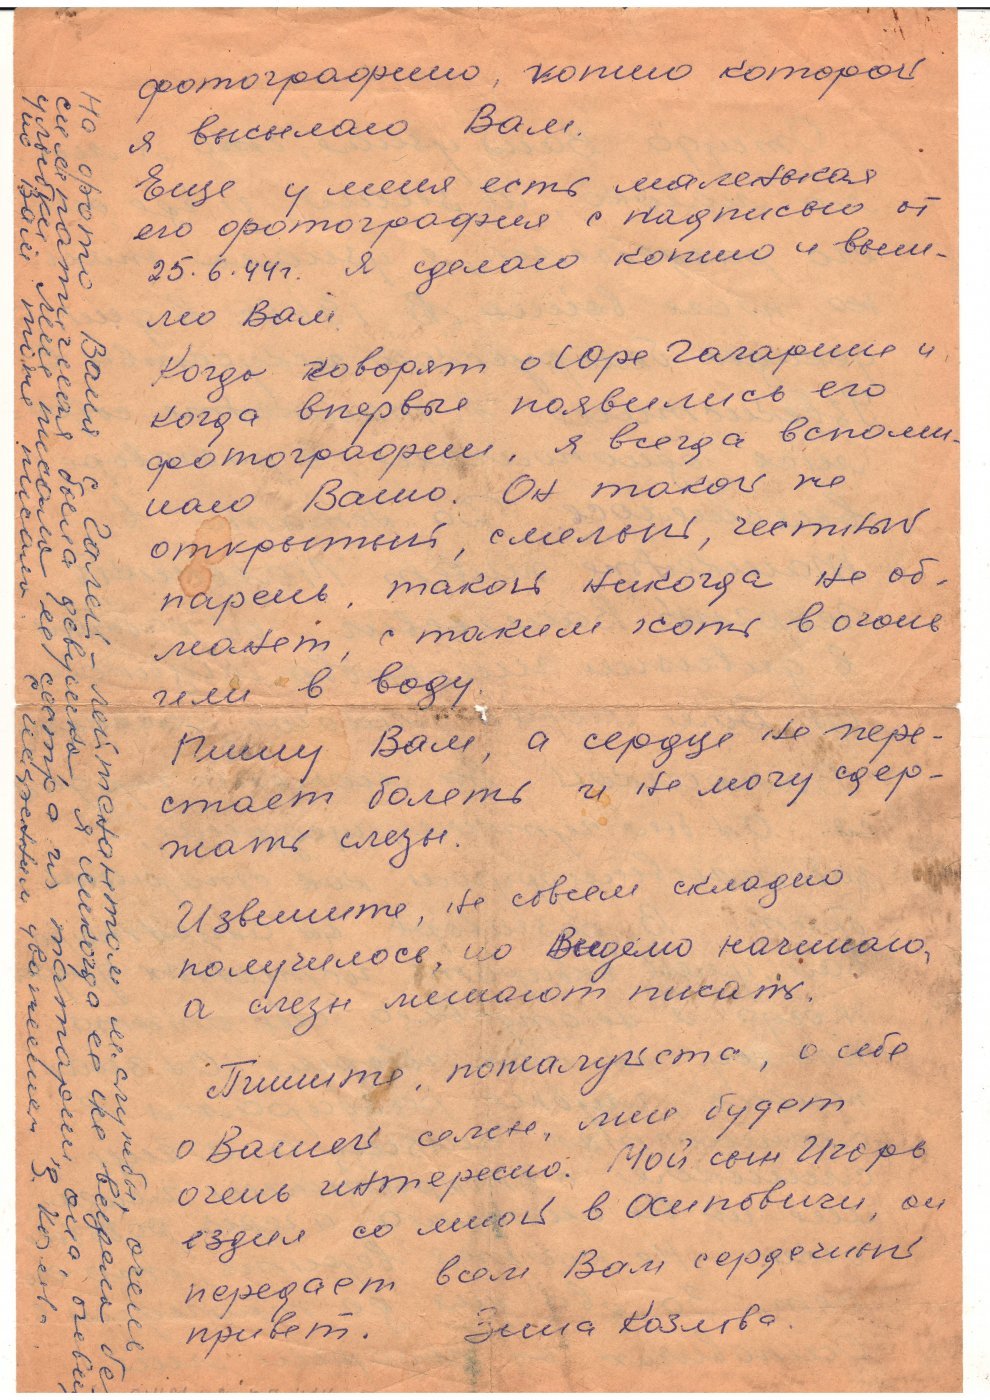 фотографию, копию которой
я высылаю Вам.
Еще у меня есть маленькая
его фотография с надписью от
25.6.44г. Я сделаю копию и выш-
лю Вам.
Когда говорят о Юре Гагарине и
когда впервые появились его
фотографии, я всегда вспоми-
наю Ваню. Он такой же
открытый, смелый, честный
парень, такой никогда не об-
манет, с таким хоть в огонь
или в воду.
Пишу Вам, а сердце не пере-
стает болеть и не могу сдер-
жать слезы.
Извините, не совсем складно
получилось, но видемо начинаю,
а слезы мешают писать.
Пишите, пожалуйста, о себе
о Вашей семье, мне будет
очень интересно. Мой сын Игорь
ездил со мной в Осиповичи, он
передает всем Вам сердечный
привет. Зина Козлова.
На фото Ваня с Галей – лейтенантом м/службы, очень
симпатичная была девушка, я никогда ее не видела без
улыбки. Мне писала ее сестра из Татарии, она, очевид
но Вам тоже писала. С искренним уважением З. Козлова